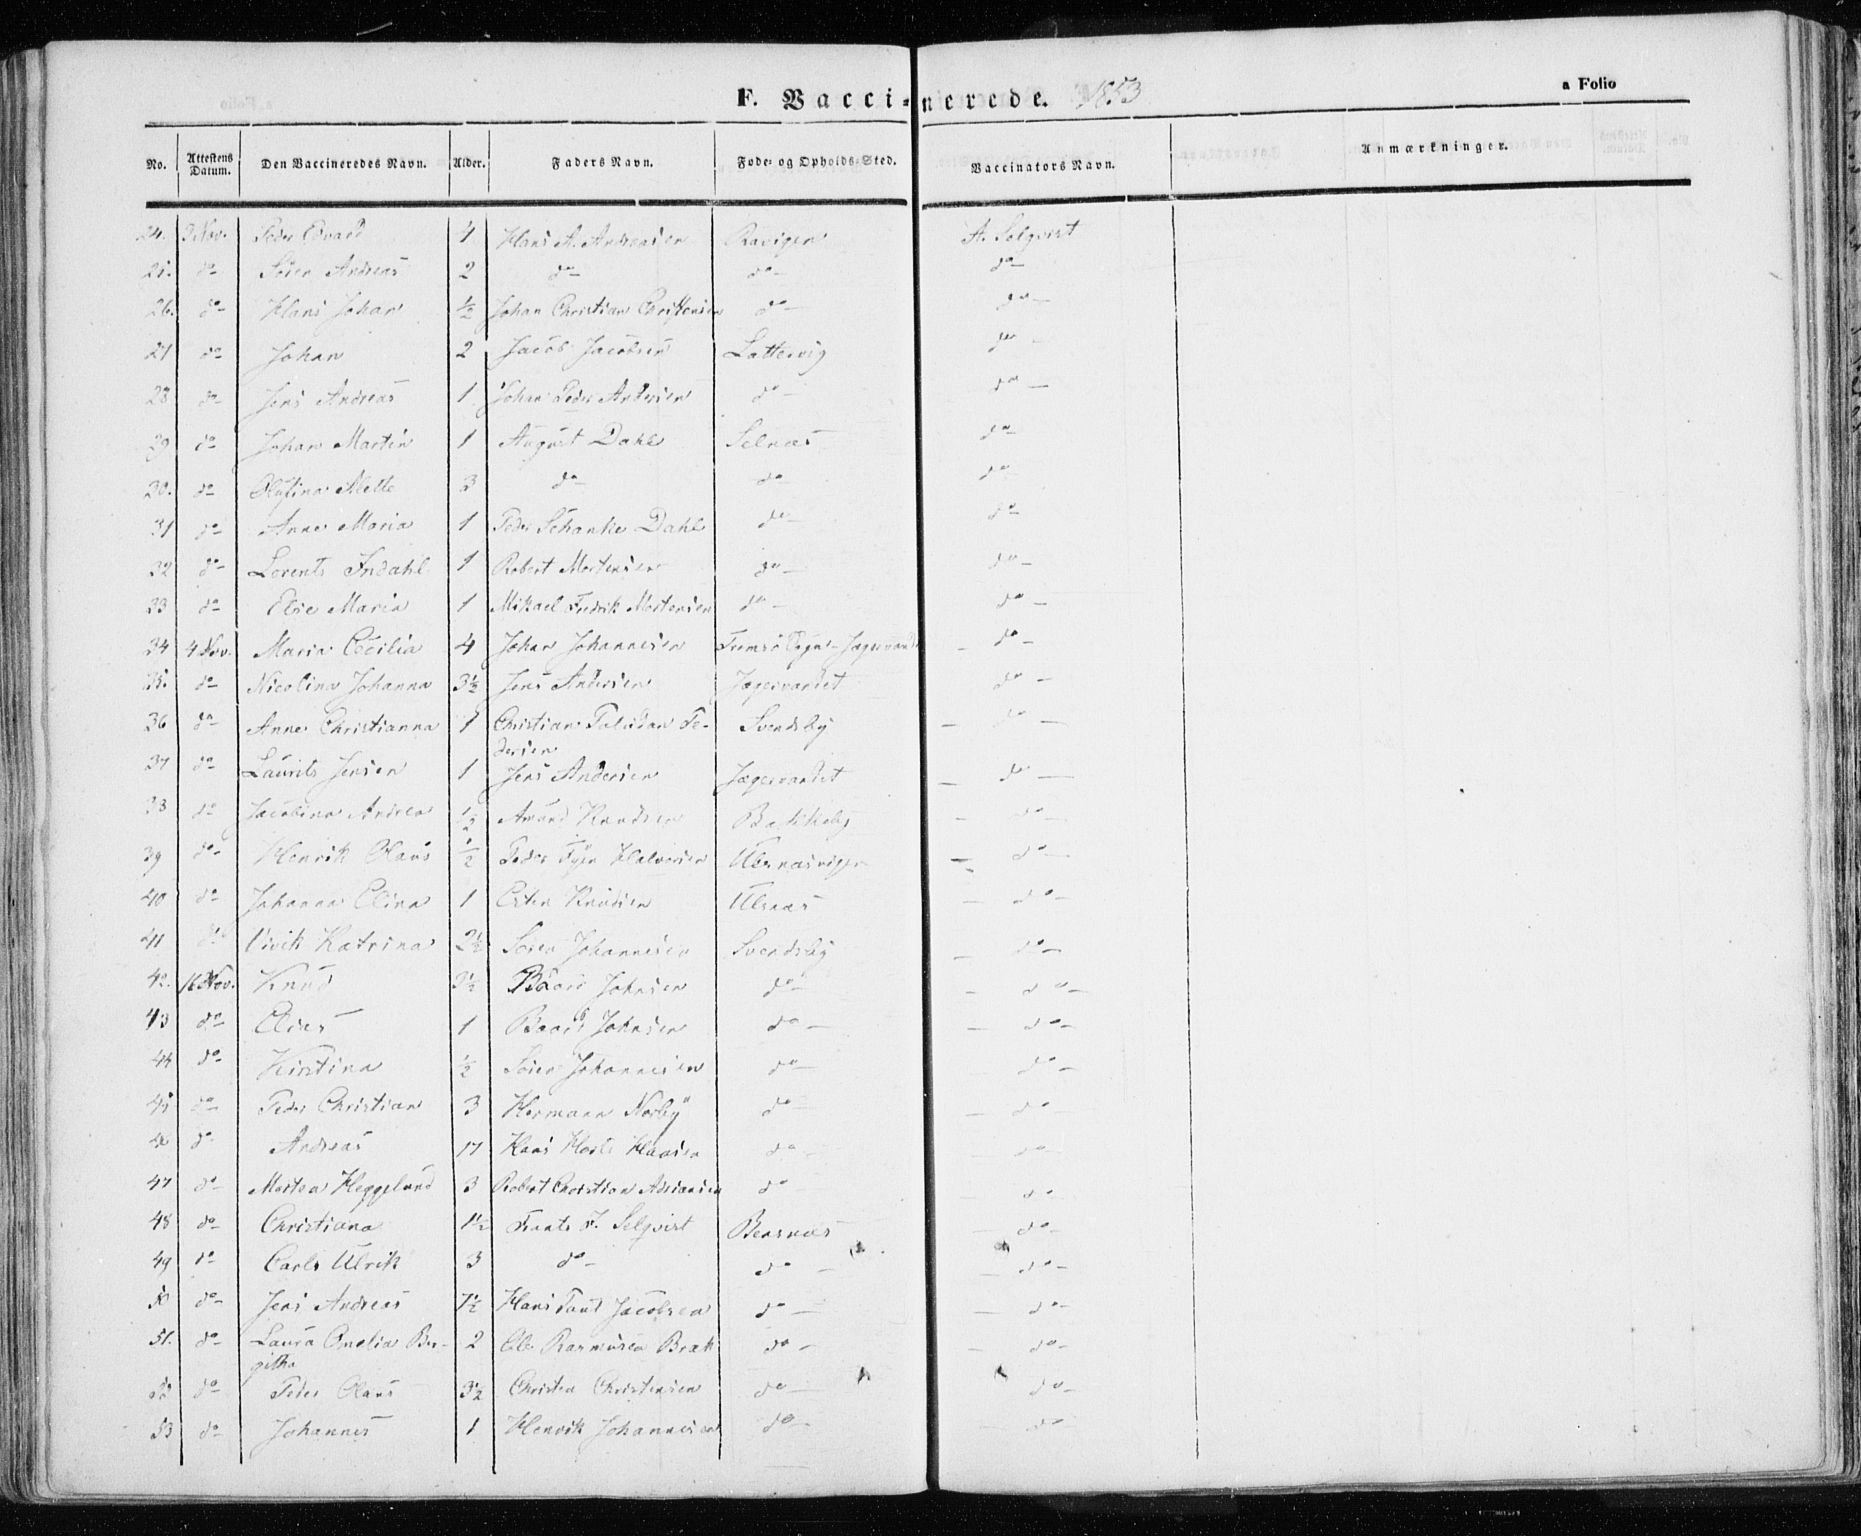 F. Vaccinerede. 1853
a Folio
No. Attestens Datum. Den Vaccineredes Navn. Alder. Faders Navn. Føde- og Opholds-Sted. Vaccinators Navn. Anmærkninger.
24. 3 Nov. Peder Edvard 4 Hans A. Andreasen Ravigen A. Selqvist
25. do Søren Andreas 2 do do do
26. do Hans Johan ½ Johan Christian Christensen do do
27 do Johan 2 Jacob Jacobsen Lattervig do
28 do Jens Andreas 1 Johan Peder Andersen do do
29 do Johan Martin 1 August Dahl Selnæs do
30. do Olufina Mette 3 do do do
31 do Anne Maria 1 Peder Schanke Dahl do do
32 do Lorents Indahl 1 Robert Mortensen do do
33 do Elie Maria 1 Mikael Fredrik Mortensen do do
34 4 Nov. Maria Cecilia 4 Johan Johannesen Tromsø Sogn - Jægervandet do
35. do Nicolina Johanna 3½ Jens Andersen Jægervandet do
36 do Anne Christianna 1 Christian Paludan Pe- Svendsby do
dersen
37 do Laurits Jensen 1 Jens Andersen Jægervandet do
38 do Jacobina Andrea ½ Amund Knudsen do
39 do Henrik Olaus ½ Peder Halvorsen Ulsnæsvigen do
40 do Johanna Elina 1 Esten Knudsen Ulsnæs do
41 do Vivik Katrina 2½ Søren Johannesen Svendsby do
42. 16 Nov. Knud 3½ Baard Johnsen do do
43 do Elias 1 Baard Johnsen do do
44 do Kirstina ½ Søren Johannesen do do
45 do Peder Christian 3 Hermann Norbÿ do do
46 do Andreas 17 Hans Hansen do do
47 do Morten Heggelund 3 Robert Christian Adriansen do do
48 do Christiana 1½ Frants F. Selqvist Beasnæs do
49 do Carl Ulrik 3 do do do
50 do Jens Andreas 7½ Hans Jacobsen do do
51. do Laura Amelia Ber- 2 Ole Rasmusen Bræk do do
githa
52 do Peder Olaus 3½ Christen Christensen do do
53 do Johannes 1 Henrik Johannesen do do